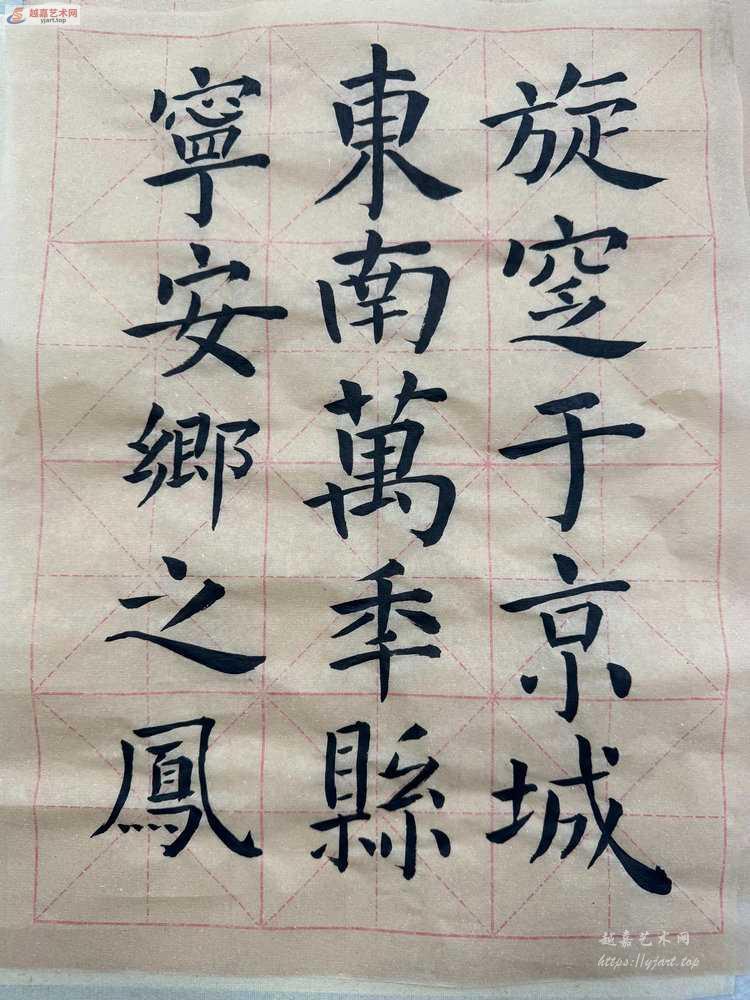 越嘉艺术网
yjart.top
旋窆于京城
東南萬秊縣
寧安鄉之鳳
越嘉艺术网
https://yjart.top